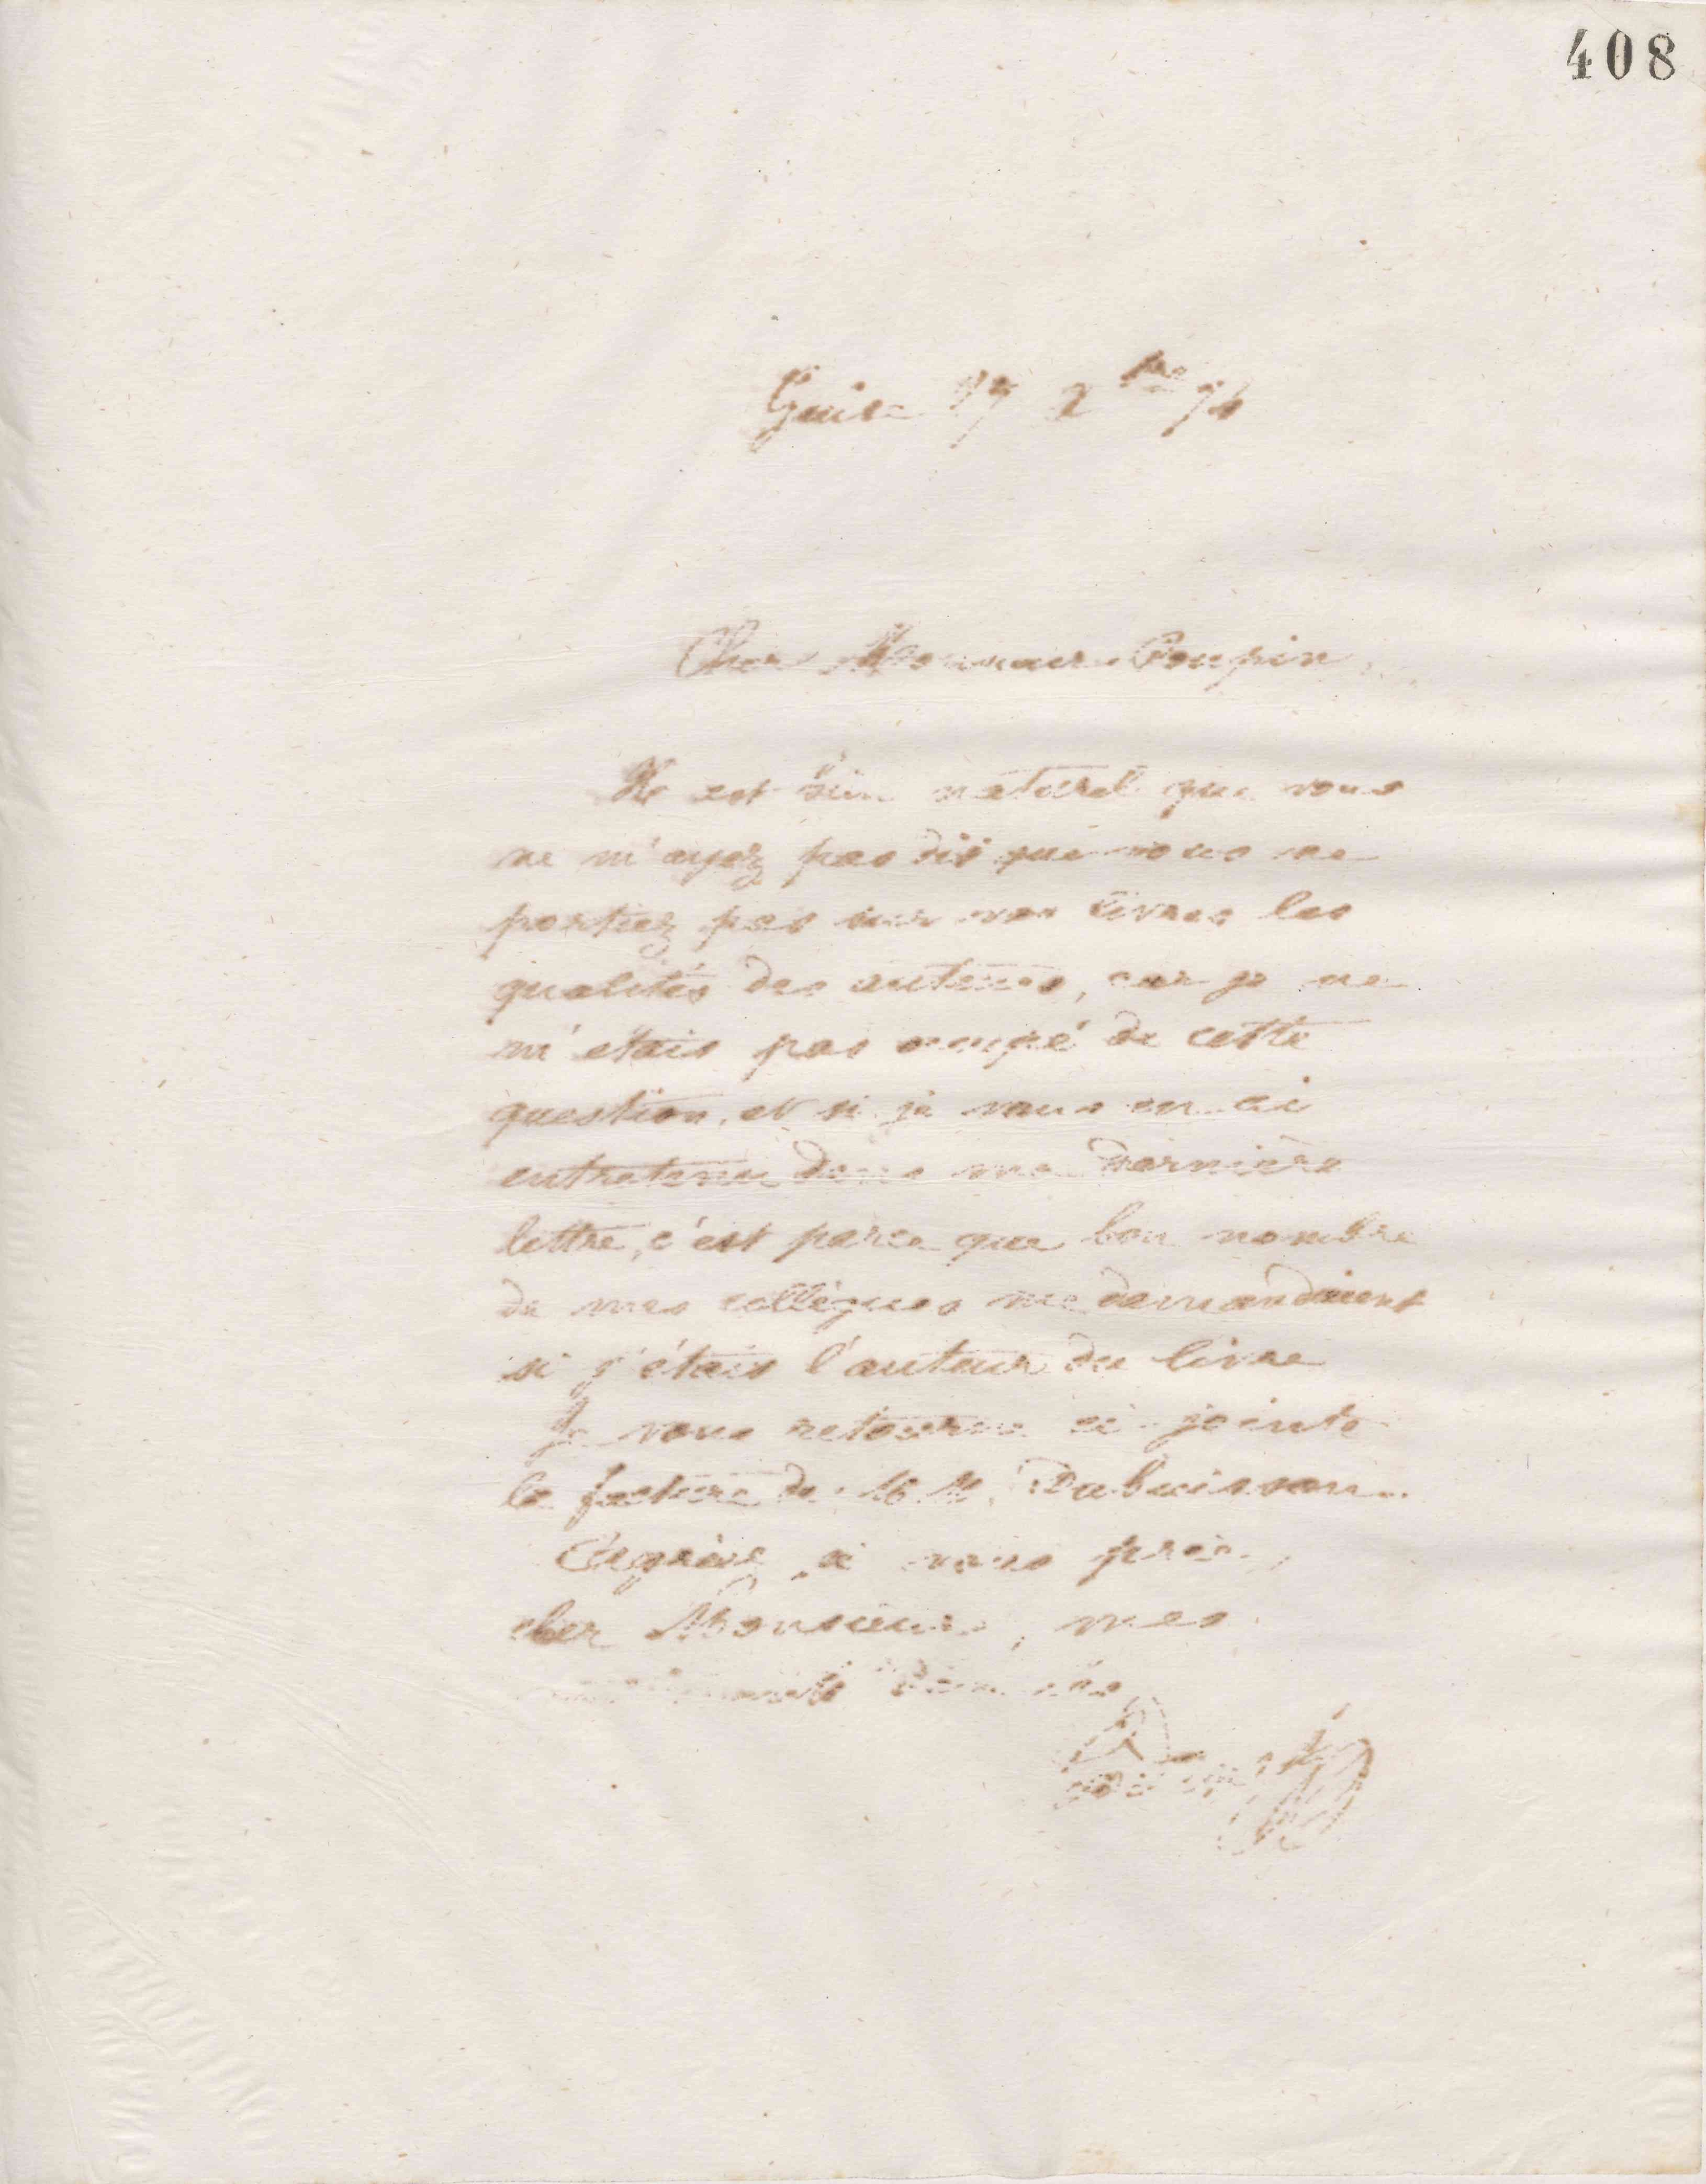 408
Guise 17
Cher Monsieur Poupin
Il est bien naturel que vous
ne m'ayez pas dit que vous ne
portiez pas sur vos livres les
qualités des auteurs, car je ne
m'étais pas occupé de cette
question, et si je vous en ai
entretenu dans ma dernière
lettre, c'est parce que bon nombre
de mes collègues me demandaient
si j'étais l'auteur du livre
Je vous retourne ci-jointe
la facture de M. M. Dubuisson.
cher Monsieur, mes